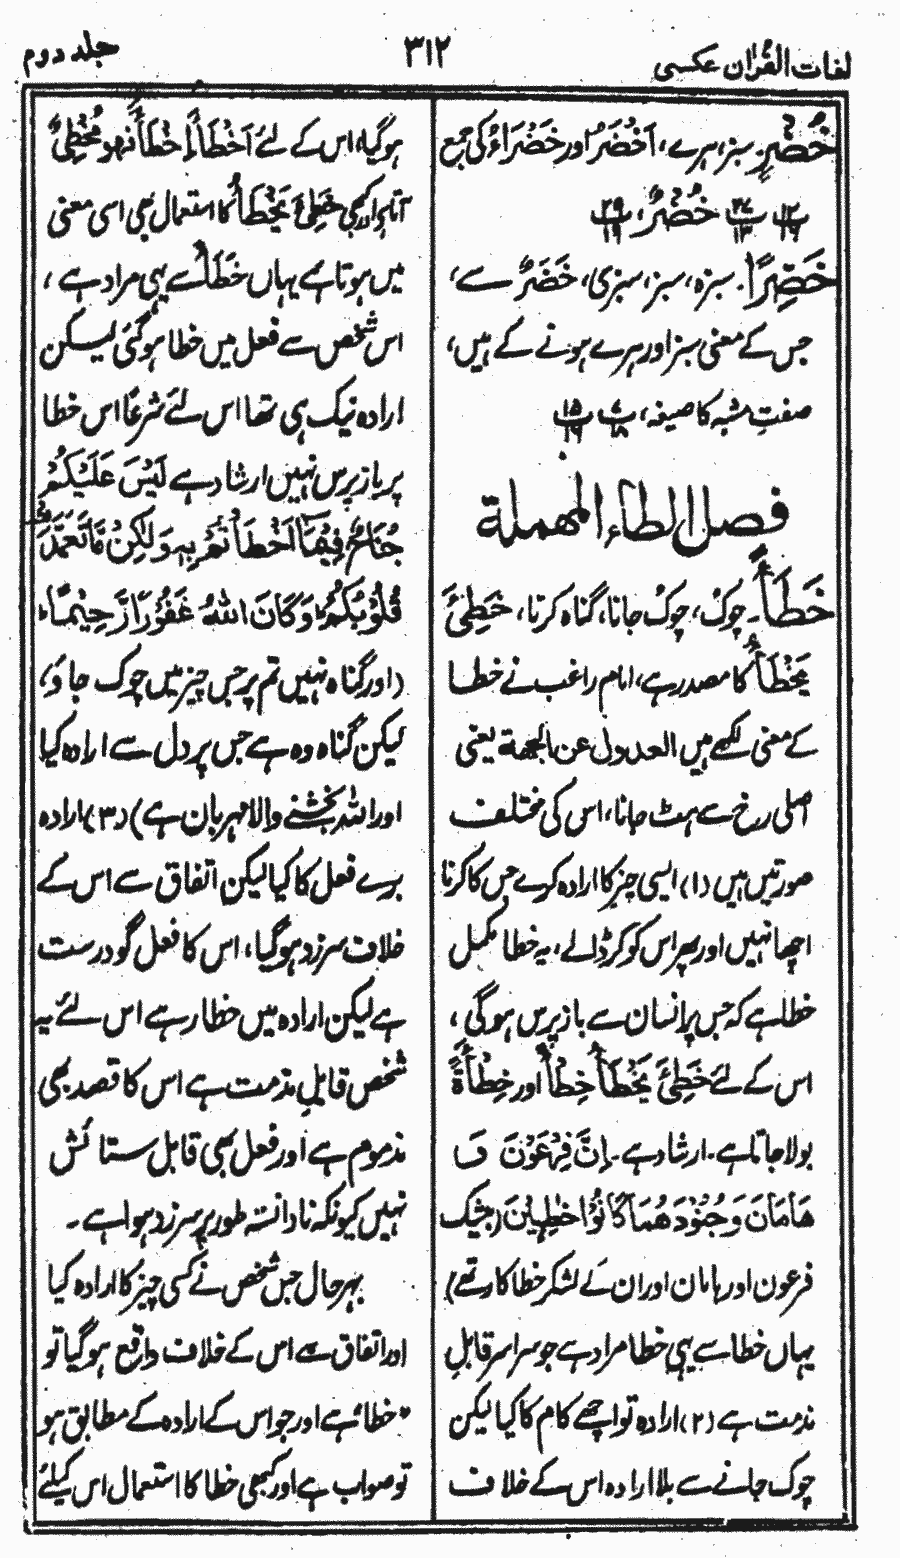 لغات القرآن عکسی
۳۱۲
جلد دوم
خُضْرٌ۔ سبز، ہرے، اَخْضَرُ اور خَضْرَاءُ کی جمع
خُضْرٌ،
خَضِرًا۔ سبزہ، سبز، سبزی، خَضَرٌ سے،
جس کے معنی سبز اور ہرے ہونے کے ہیں،
صفتِ مشبہ کا صیغہ،
فصل الطاء المهملة
خَطَأً۔ چوک، چوک جانا، گناہ کرنا، خَطِئَ
یَخْطَأُ کا مصدر ہے، امام راغب نے خطا
کے معنی لکھے ہیں العدول عن الجهة یعنی
اصلی رخ سے ہٹ جانا، اس کی مختلف
صورتیں ہیں (۱) ایسی چیز کا ارادہ کرے جس کا کرنا
اچھا نہیں اور پھر اس کو کر ڈالے، یہ خطا مکمل
خطا ہے کہ جس پر انسان سے بازپرس ہوگی،
اس کے لئے خَطِئَ یَخْطَأُ خِطْأً اور خِطْأَةً
بولا جاتا ہے۔ ارشاد ہے۔ اِنَّ فِرْعَوْنَ وَ
هَامَانَ وَجُنُوْدَهُمَا كَانُوْا خٰطِئِيْنَ (بیشک
فرعون اور ہامان اور ان کے لشکر خطا کار تھے)
یہاں خطا سے یہی خطا مراد ہے جو سراسر قابلِ
مذمت ہے (۲) ارادہ تو اچھے کام کا کیا لیکن
چوک جانے سے بلا ارادہ اس کے خلاف
ہوگیا، اس کے لئے اَخْطَأَ اِخْطَأً فهو مُخْطِئٌ
آتا ہے اور کبھی خَطِئَ یَخْطَأُ کا استعمال بھی اسی معنی
میں ہوتا ہے یہاں خَطَأً سے یہی مراد ہے،
اس شخص سے فعل میں خطا ہوگئی لیکن
ارادہ نیک ہی تھا اس لئے شرعًا اس خطا
پر بازپرس نہیں ارشاد ہے لَيْسَ عَلَيْكُمْ
جُنَاحٌ فِيْمَا اَخْطَأْتُمْ بِهٖ وَلٰكِنْ مَّا تَعَمَّدَتْ
قُلُوْبُكُمْ وَكَانَ اللّٰهُ غَفُوْرًا رَّحِيْمًا،
(اور گناہ نہیں تم پر جس چیز میں چوک جاؤ،
لیکن گناہ وہ ہے جس پر دل سے ارادہ کیا
اور اللہ بخشنے والا مہربان ہے) (۳) ارادہ
برے فعل کا کیا لیکن اتفاق سے اس کے
خلاف سرزد ہوگیا، اس کا فعل گو درست
ہے لیکن ارادہ میں خطا رہے اس لئے یہ
شخص قابلِ مذمت ہے اس کا قصد بھی
مذموم ہے اور فعل بھی قابل ستائش
نہیں کیونکہ نادانستہ طور پر سرزد ہوا ہے۔
بہرحال جس شخص نے کسی چیز کا ارادہ کیا
اور اتفاق سے اس کے خلاف واقع ہوگیا تو
خطا ہے اور جو اس کے ارادہ کے مطابق ہو
تو صواب ہے اور کبھی خطا کا استعمال اس کیلئے